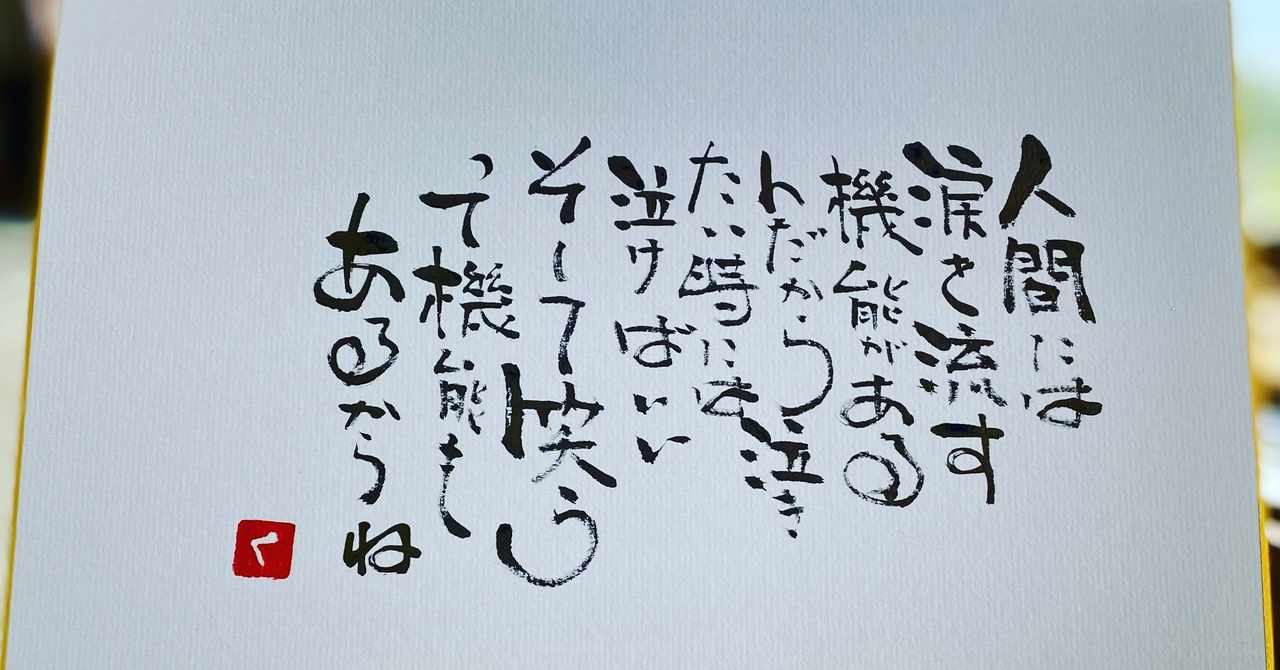 人間には
涙を流す
機能がある
んだから泣き
たい時には
泣けばいい
そして笑う
って機能も
あるからね
く